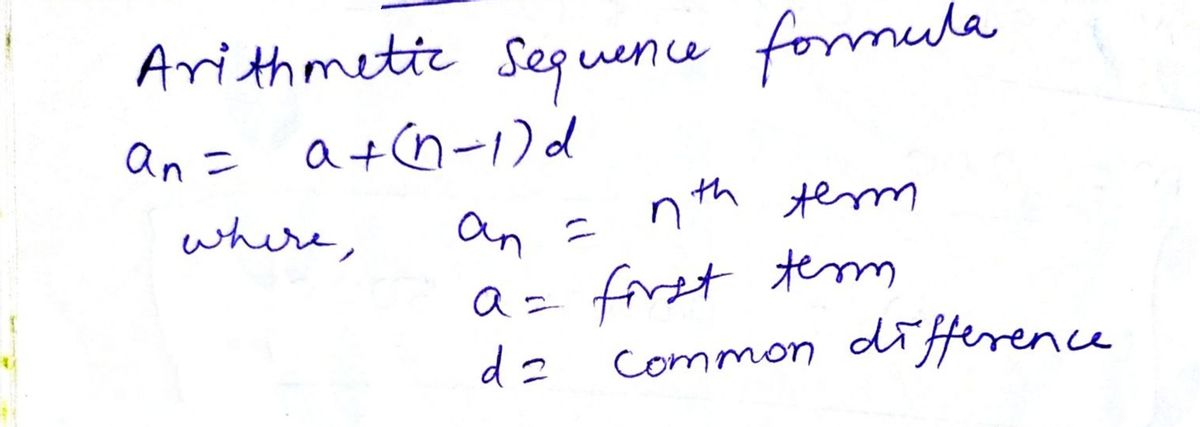 Arithmetic Sequence formula
an = a+(n-1)d
where, an = nth term
a = first term
d = common difference